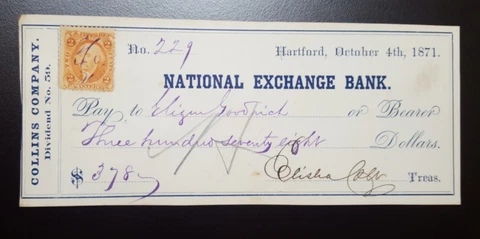 COLLINS COMPANY.
Dividend No. 59.
No. 229
Hartford, October 4th, 1871.
NATIONAL EXCHANGE BANK.
Pay to Elizur Goodrich or Bearer
Three hundred seventy eight Dollars.
$ 378
Elisha Colt Treas.